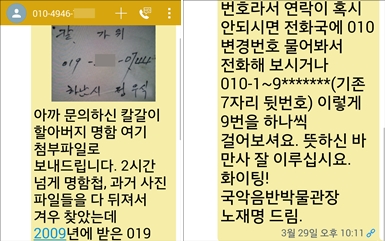 010-4946-
칼 가위
019 - -0744
하난시 정우식
아까 문의하신 칼갈이
할아버지 명함 여기
첨부파일로
보내드립니다. 2시간
넘게 명함첩, 과거 사진
파일들을 다 뒤져서
겨우 찾았는데
2009년에 받은 019
번호라서 연락이 혹시
안되시면 전화국에 010
변경번호 물어봐서
전화해 보시거나
010-1~9*******(기존
7자리 뒷번호) 이렇게
9번을 하나씩
걸어보셔요. 뜻하신 바
만사 잘 이루십시요.
화이팅!
국악음반박물관장
노재명 드림.
3월 29일 오후 10:11